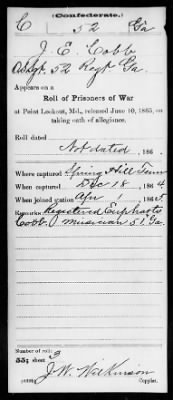 (Confederate.)
C 52 Ga
J. E. Cobb
52 Regt Ga.
Appears on a
Roll of Prisoners of War
at Point Lookout, Md., released June 10, 1865, on
taking oath of allegiance.
Roll dated
Not dated, 186 .
Where captured Spring Hill Tenn
When captured Dec 18, 1864
When joined station Apr 1, 1865.
Remarks Registered
Cobb. Musician 51 Ga.
Number of roll: 3
sheet
J. W. Wilkinson
Copyist.